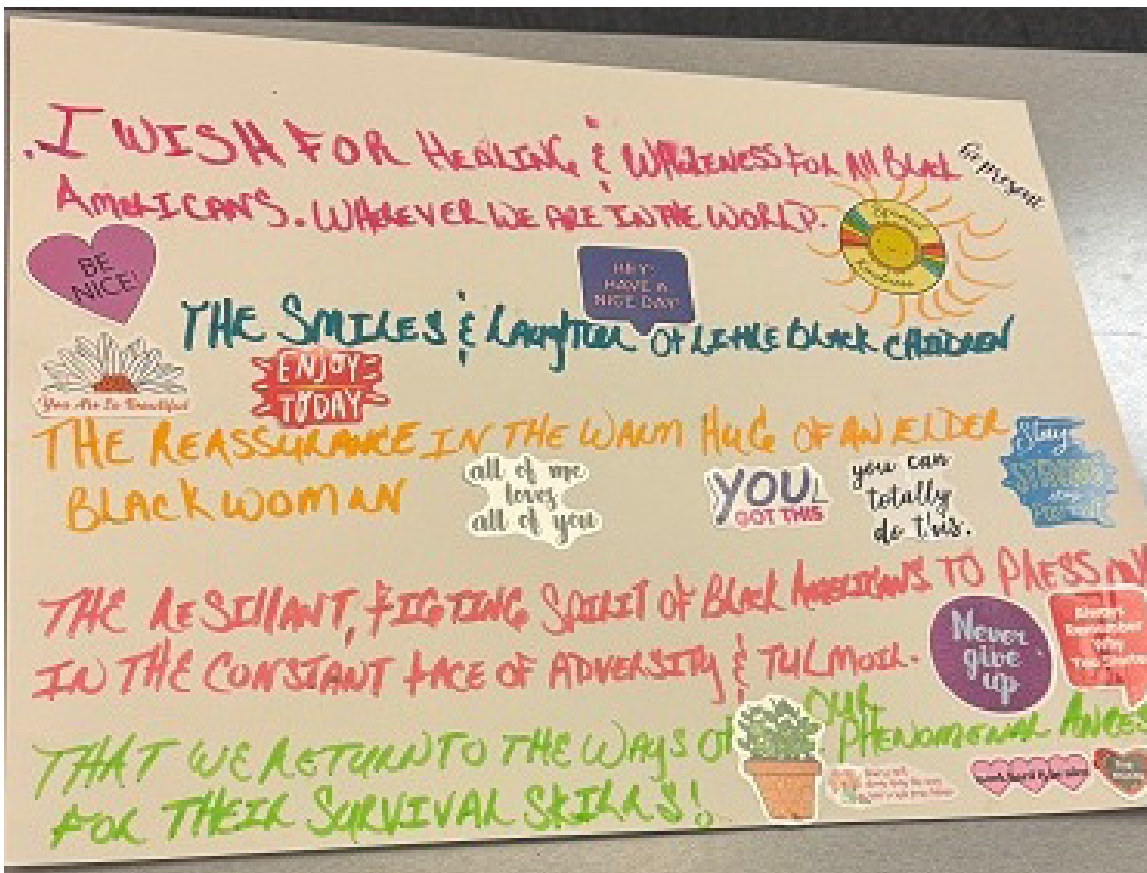 .I WISH FOR HEALING & WHOLENESS FOR All BLACK
Be present
AMERICANS. WHEREVER WE ARE IN THE WORLD.
Kindness
BE
NICE!
HEY!
HAVE A
NICE DAY
THE SMILES & LAUGHTER OF LITTLE BLACK CHILDREN
You Are So Beautiful
ENJOY
TODAY
THE REASSURANCE IN THE WARM HUG OF AN ELDER
BLACK WOMAN
all of me
loves
all of you
YOU
GOT THIS
you can
totally
do this.
Stay
STRONG
stay
POSITIVE
THE RESILIANT, FIGTING SPIRIT OF BLACK AMERICANS TO PRESS ON
IN THE CONSTANT FACE OF ADVERSITY & TULMOIL.
Never
give
up
Always
Remember
Why
You Started
THAT WE RETURN TO THE WAYS OF OUR PHENOMENAL ANCES
FOR THEIR SURVIVAL SKILLS!